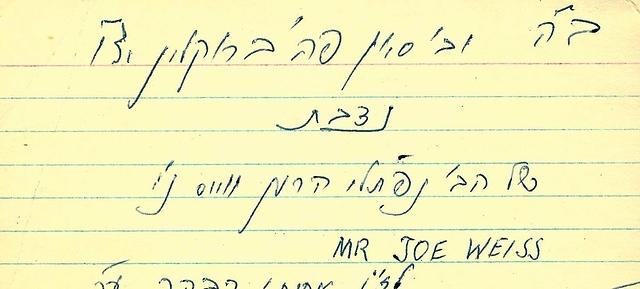 ב"ה וב' סיון פה ב' ברוקלין יצ"ו
נדבת
של הב' נפתלי הרמן ווייס ני'
MR JOE WEISS